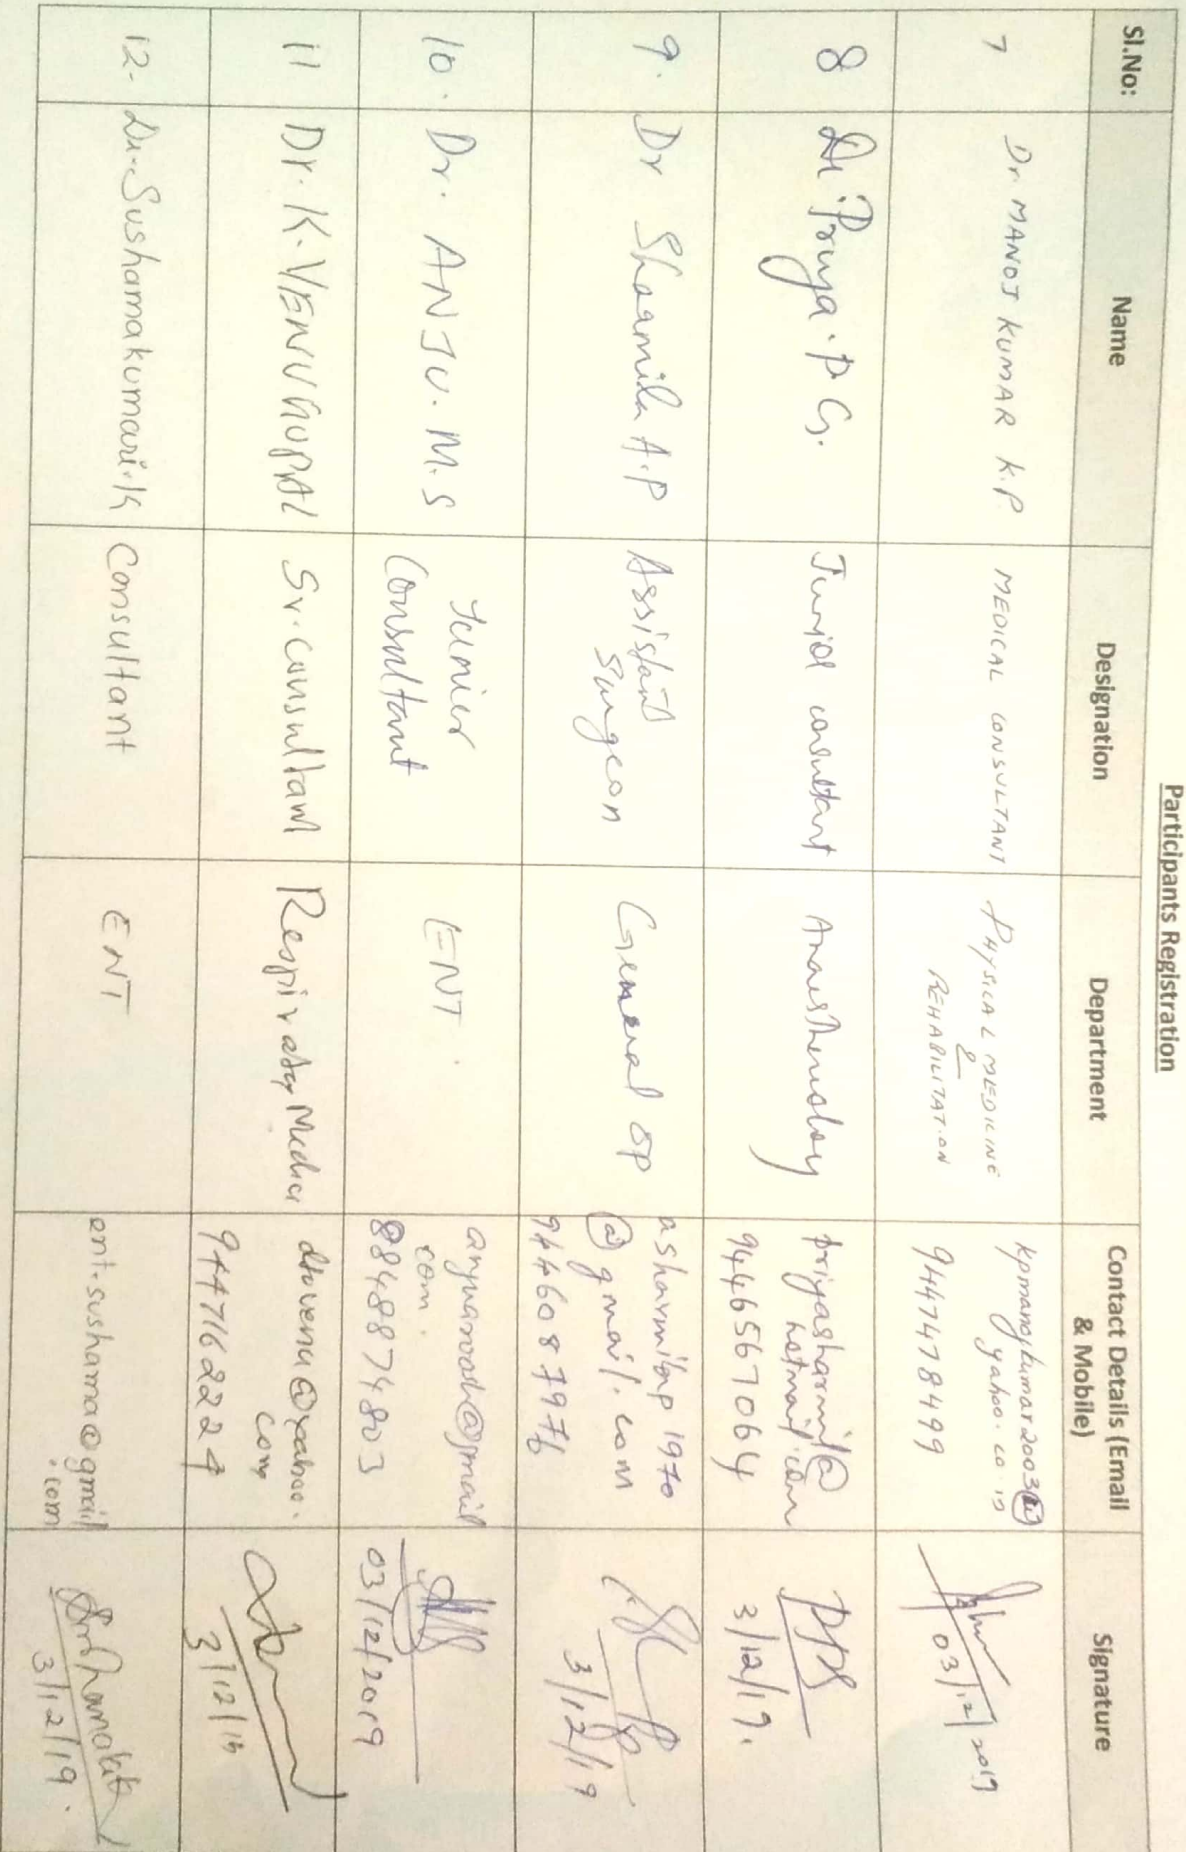 Participants Registration
Sl.No: Name Designation Department Contact Details (Email & Mobile) Signature
7 Dr. MANOJ KUMAR K.P MEDICAL CONSULTANT PHYSICAL MEDICINE & REHABILITATION kpmanojkumar2003@yahoo.co.in 9447478499 03/12/2019
8 Dr. Priya. P G. Junior consultant Anaesthesiology priyasharmil@hotmail.com 9446567064 3/12/19.
9. Dr Sharmila A.P Assistant Surgeon General OP asharmilap1970@gmail.com 9446087976 3/12/19
10. Dr. ANJU. M. S Junior Consultant ENT. @gmail com. 8848874803 03/12/2019
11 Dr. K. VENUGOPAL Sr. Consultant Respiratory drvenu@yahoo.com 9447162224 3/12/19
12. Dr. Sushamakumari.K Consultant ENT ent.sushama@gmail.com 3/12/19.